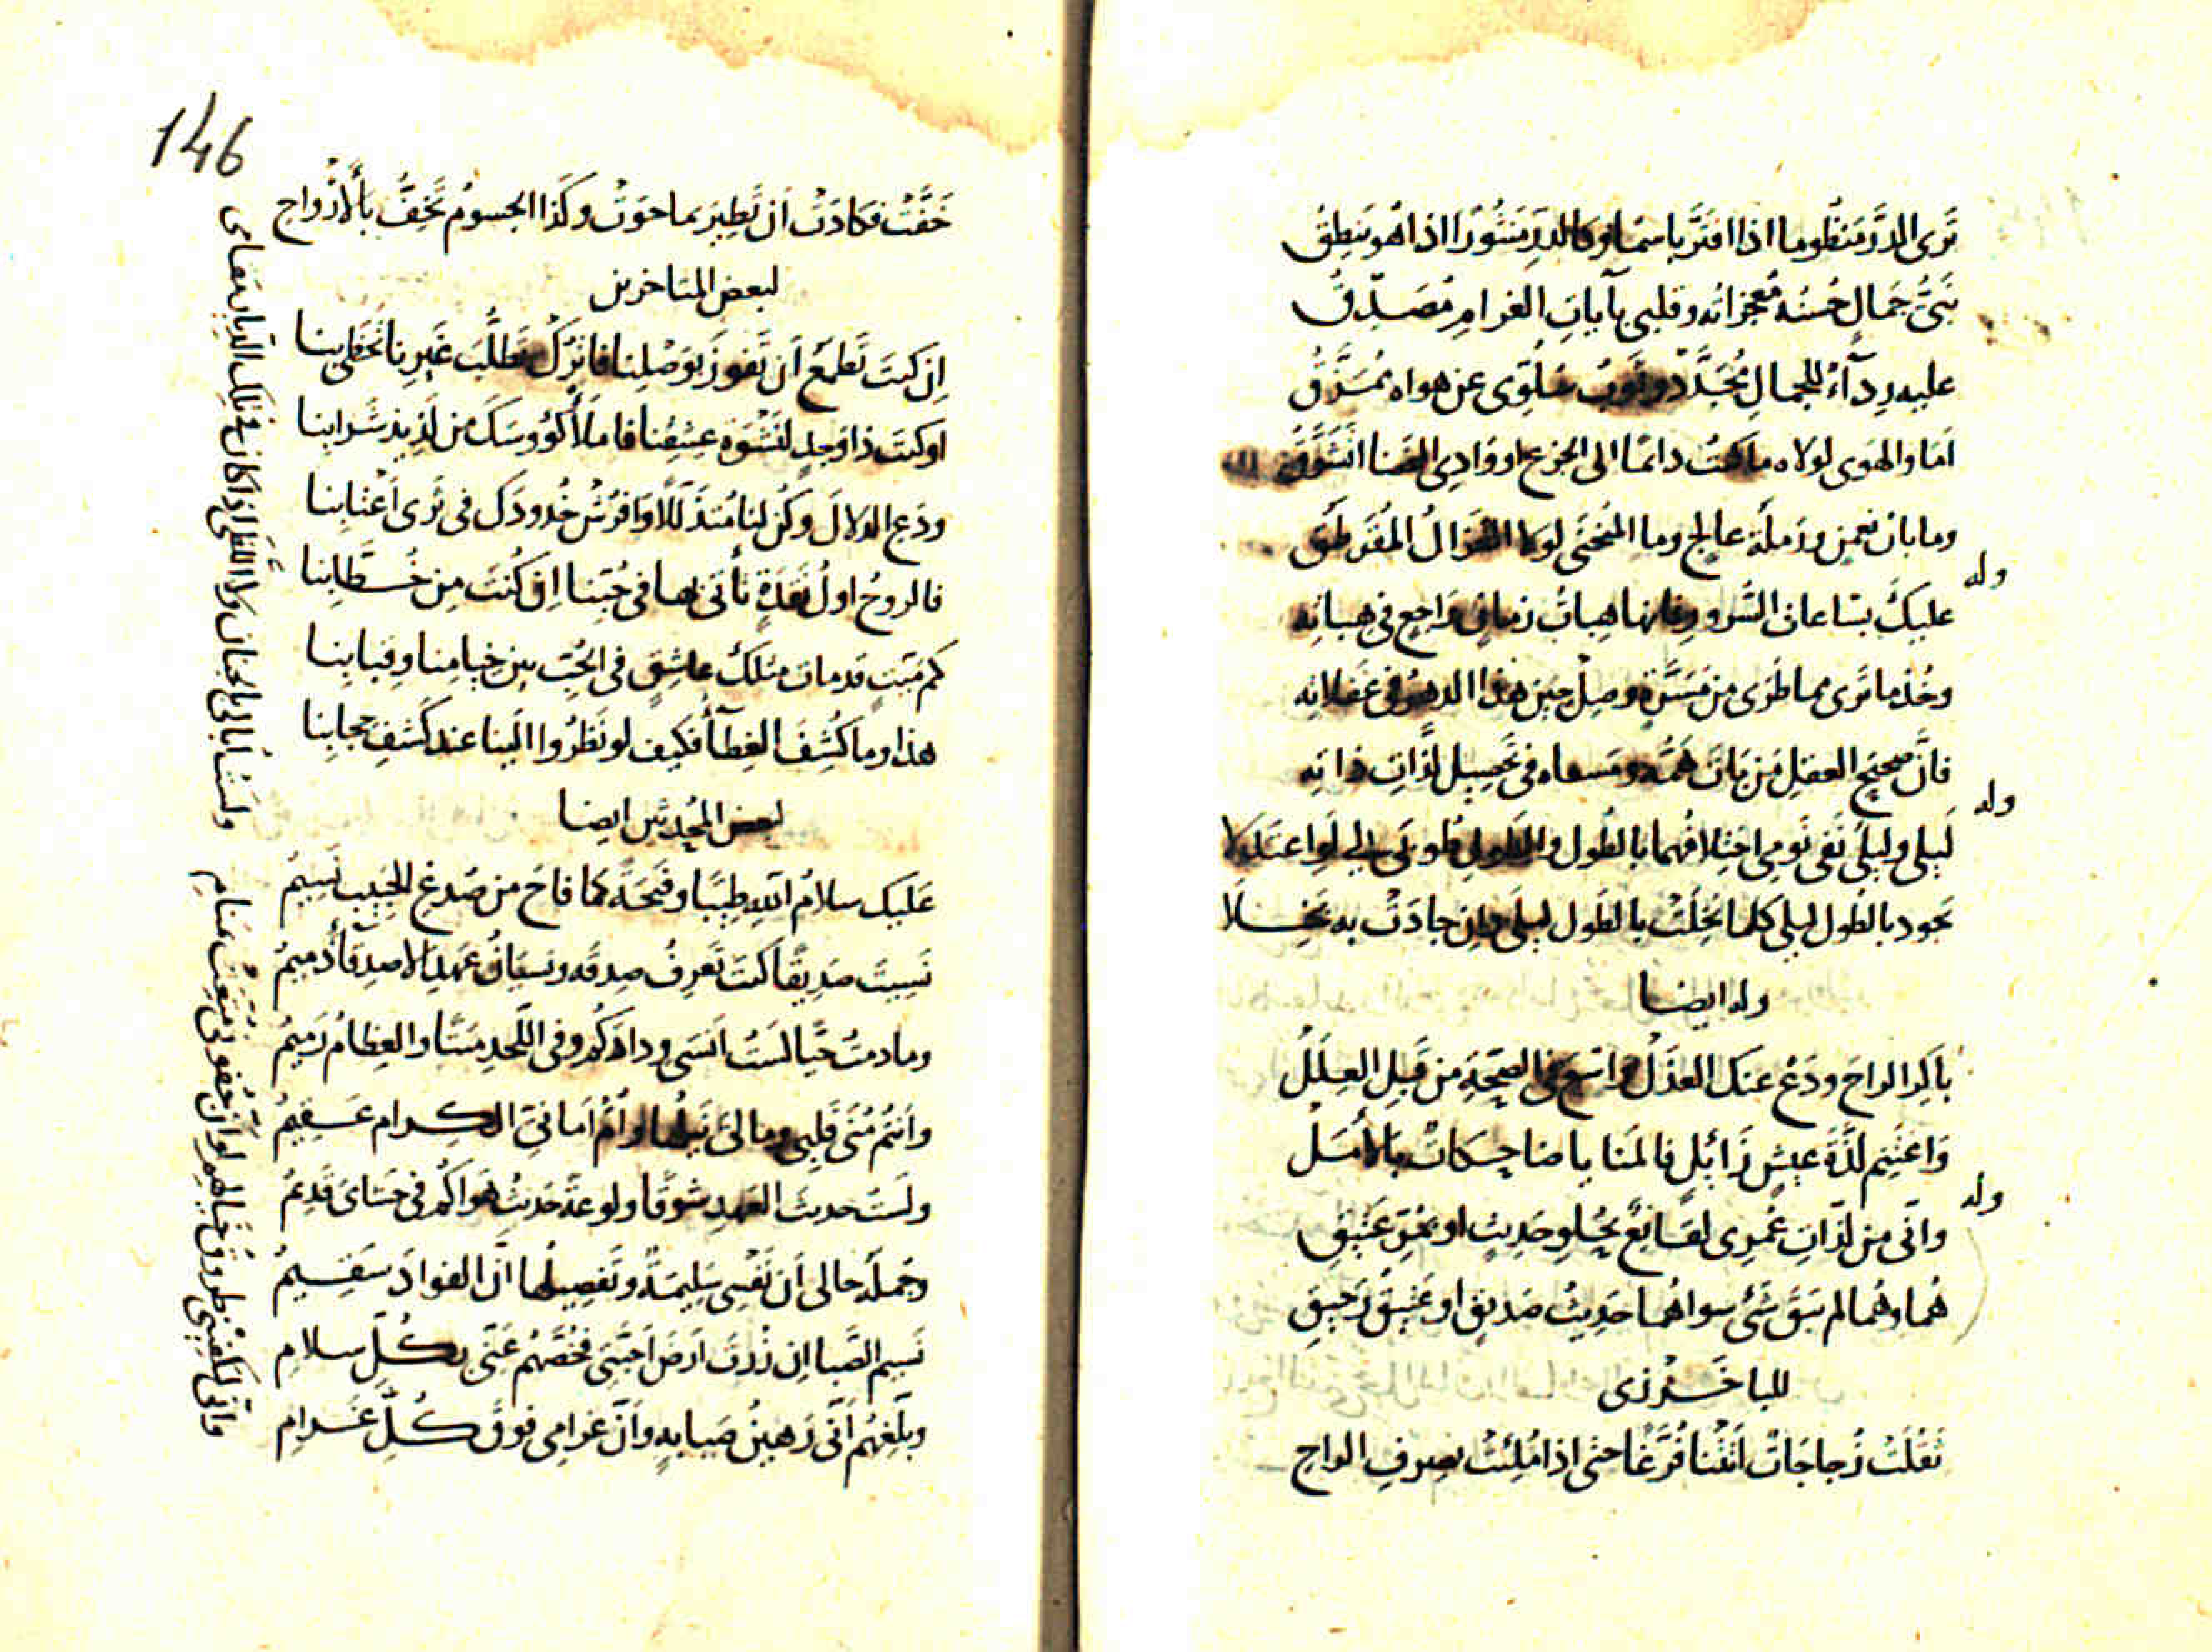 تَرى الدُرَّ مَنظُوما اذا افتَرَّ باسمًا وكالدرِّ مَنثُورًا اذا هُو يَنطِقُ
نَبىُّ جَمالٍ حُسنُه مُعجزاتُه وقلبى بآياتِ الغرامِ مُصَدِّقُ
عليه رِدآءٌ للجمالِ مُجَدَّدٌ وثَوبُ سُلُوّى عن هواه مُمَزَّقُ
اَمَا والهَوى لولاه ما كنتُ دائمًا الى الجزع او وَادِى الغَضا اتَشَوَّقُ
وما بان نعمٍن ورَملَة عالج وما المُنحَنَى لولا الغَزالُ المُقَرطَقُ
وله
عليكَ بسَاعات السُّرورِ فانها هِباتُ زمانٍ رَاجعٍ فى هِباتِه
وخُذ ما تَرى مما طَرَى من مَسَرَّةٍ وصِلْ حينَ هذا الدهرُ فى غفلاتِه
فانَّ صحيحَ العقلِ مَن بَاتَ هَمُّه ومَسعاه فى تَحصيلِ لَذّاتِ ذاتِه
وله
لَيلِى ولَيلَى نَفَى نَومى اختِلافُهما بالطُول والطَولِ طُوبَى لى لَوِ اعتَدَلا
يَجود بالطُول ليلى كلما بَخِلَتْ بالطَول ليلَى وإن جادَتْ به بَخِلا
وله ايضا
بَاكِر الراحَ ودَعْ عنك العَذَلْ واسْعَ فى الصِحّةِ مِن قَبلِ العِلَلْ
وَاغتَنِم لَذّةَ عَيشٍ زَائلٍ فالمَنايا ضاحِكاتٌ بالأمَلْ
وله
وانّى من لذّاتِ عُمرِى لقَانِعٌ بحُلوِ حَدِيثٍ او بمُرِّ عَتيقِ
هُما وهُما لم يَبقَ شَئ سواهُما حَدِيثُ صَديقٍ او عَتيقُ رَحيقِ
للباخَرْزى
ثَقُلَتْ زُجاجَاتٌ اَتَتْنا فُرَّغًا حتى اذا مُلِئَتْ بصِرفِ الراحِ
146
خَفَّتْ فكادَتْ اَن تَطِيرَ بما حَوَتْ وكَذا الجسومُ تَخِفُّ بالأرْواحِ
لبعض المتاخرين
اِن كنتَ تَطمَعُ اَن تَفوزَ بوَصْلِنا فاترُكْ تَطلُّبَ غَيرِنا تَحظَى بنا
او كنتَ ذا وَجدٍ لنَشْوَةِ عِشقِنا فاملَأ كؤوسَكَ مِن لَذِيذِ شَرابِنا
ودَعِ الدلالَ وكُن لنا مُتذَلِّلًا وَافرُشْ خُدودَكَ فى ثَرى اَعْتابِنا
فالروحُ اولُ نَقدَةٍ تأتى بها فى حُبِّنا اِن كُنتَ مِن خُطَّابِنا
كم مَيّتٍ قد مات مثلَك عاشِقٍ فى الحُبّ بين خِيامِنا وقِبابِنا
هذا وما كُشِفَ الغِطآءُ فكيف لو نَظَرُوا الَينا عند كَشفِ حِجابِنا
لبعض المُحدثين ايضا
عَلَيك سلامُ اللهِ طِيبًا ونَفحَةً كما فاحَ من صُدغِ الحَبيبِ نَسِيمُ
نَسِيتَ صَدِيقًا كنتَ تَعرِفُ صِدقَه ونسيانُ عَهدِ الاصدِقآءِ ذَمِيمُ
وما دمتُ حَيًّا لستُ اَنسَى ودادَكُم وفى اللَّحدِ مَيتًا والعِظامُ رَمِيمُ
وَاَنتُم مُنَى قَلبِى ومالى نَيلُها واُمُّ اَمانىِّ الكِرام عَقِيمُ
ولَستُ حديثَ العَهدِ شوقًا ولوعةً حَدِيثُ هَواكُم فى حَشاىَ قَدِيمُ
وجُملَة حالى اَن نَفْسِى سَلِيمَةٌ وتَفصِيلُها اَنَّ الفوادَ سَقِيمُ
نَسِيم الصَّبا اِن زُرتَ اَرضَ اَحِبَّتِى فخُصَّهُم عَنّى بكُلِّ سلامِ
وبَلِّغهُم اَنّى رَهينُ صَبابةٍ وَاَنّ غرامِى فوقَ كُلِّ غَرامِ
وانّى ليَكفِينى طروقُ خيالِهم لو اَنّ جُفونى مُتِّعَتْ بمَنامِ
ولستُ اُبالى بالجنان ولا اللظى اذا كان فى تلك الديار مقامى